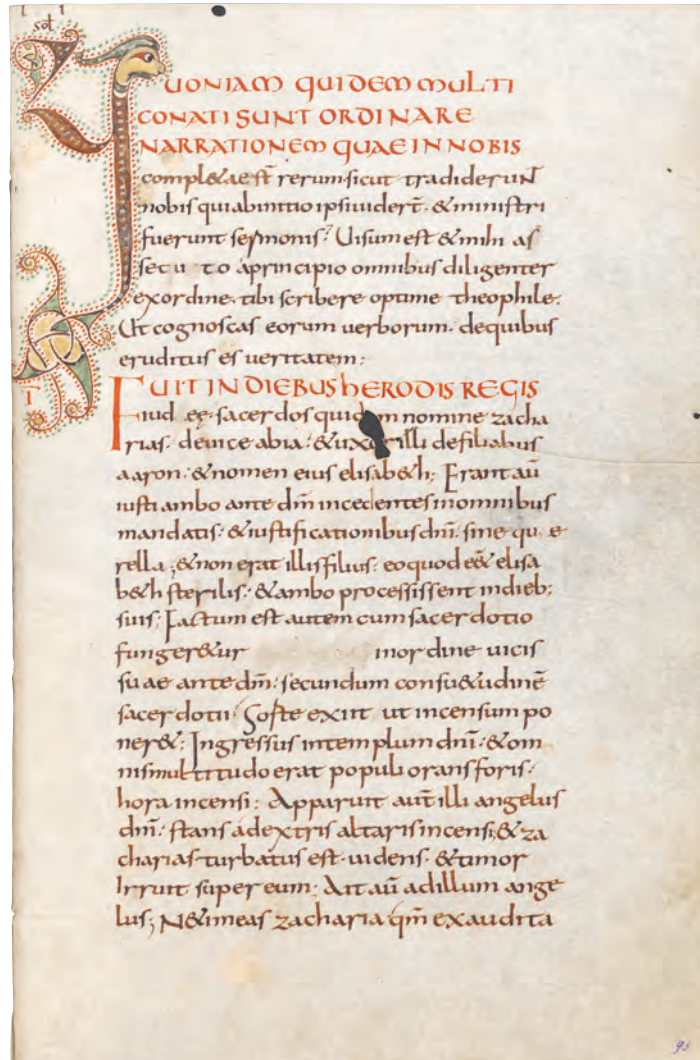 sol
QUONIAM QUIDEM MULTI
CONATI SUNT ORDINARE
NARRATIONEM QUAE IN NOBIS
compl&ae st̄ rerum sicut tradiderunt
nobis qui ab initio ipsi uider̄t. & ministri
fuerunt sermonis. Uisum est & mihi as
secu to a principio omnibus diligenter
ex ordine. tibi scribere optime theophile.
Ut cognoscas eorum uerborum. de quibus
eruditus es ueritatem;
FUIT IN DIEBUS hERODIS REGIS
iud ęę. sacerdos quidem nomine zacha
rias. de uice abia. & uxor illi de filiabus
aaron. & nomen eius elisab&h; Erant aū
iusti ambo ante dm̄ incedentes in omnibus
mandatis. & iustificationibus dn̄i. sine qu e
rella; & non erat illis filius. eo quod eēt elisa
b&h sterilis. & ambo processissent in dieb;
suis; Factum est autem cum sacerdotio
funger&ur in ordine uicis
suae ante dm̄. secundum consu&udinē
sacerdotii. Sorte exiit ut incensum po
ner&; Ingressus in templum dn̄i. & om
nis multitudo erat populi orans foris.
hora incensi; Apparuit aut̄ illi angelus
dn̄i. stans a dextris altaris incensi; & za
charias turbatus est. uidens. & timor
Irruit super eum; Ait aū ad illum ange
lus; Ne timeas zacharia qm̄ exaudita